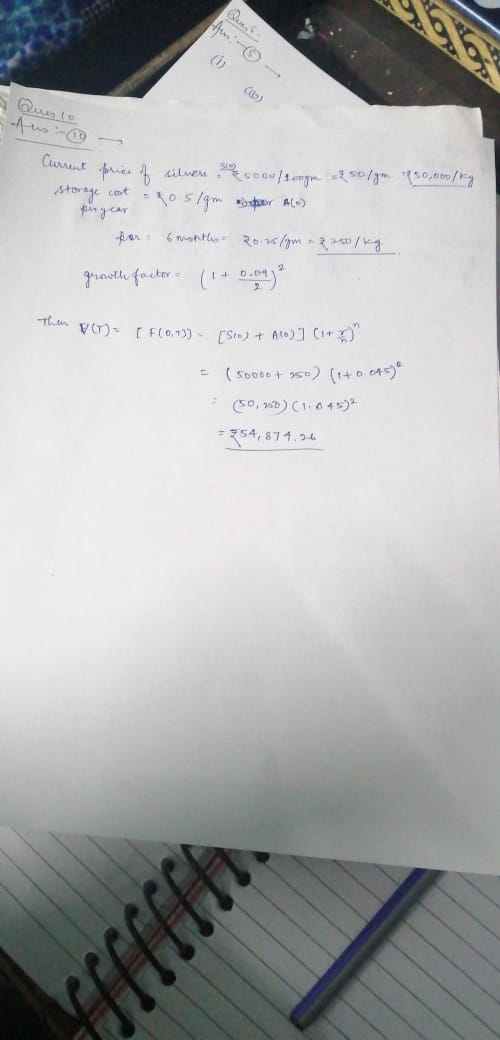 Ques 5.
Ans:- (5) →
(i)
(b)
Ques 10
Ans:- (10) →
Current price of silver S(0) = ₹5000/100gm = ₹50/gm = ₹50,000/kg
storage cost per year = ₹0.5/gm A(0)
for = 6 months = ₹0.25/gm = ₹250/kg
growth factor = (1 + 0.09/2)²
Then V(T) = [F(0,T)] = [S(0) + A(0)] (1+ r/n)ⁿ
= (50000 + 250) (1+0.045)²
= (50,250) (1.045)²
= ₹54,874.26